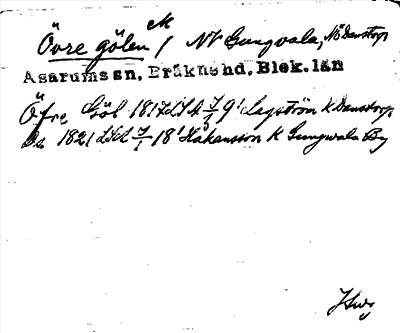 Övre gölen / NV Gungvala, NÖ Danstorp
Asarums sn, Bräkne hd, Blek. län
Öfre Göl 1817 LSA 7/5 9' Lagström K Danstorp
Ds 1821 7/1 18' Håkansson K Gungvala By